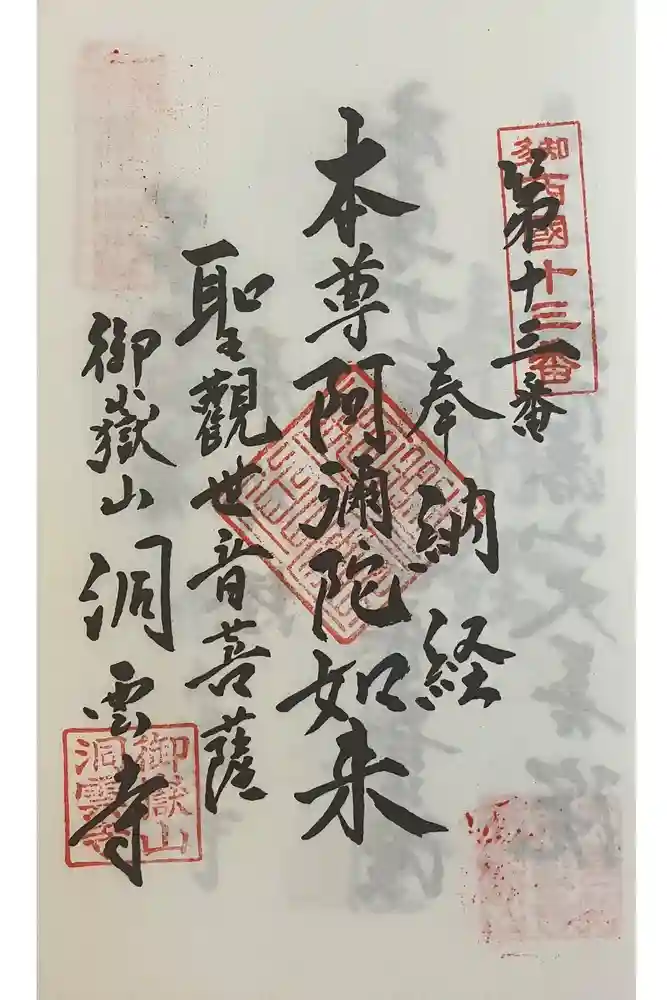 知多西國十三番
第十三番
奉納経
本尊阿彌陀如来
聖觀世音菩薩
御嶽山洞雲寺
御嶽山
洞雲寺